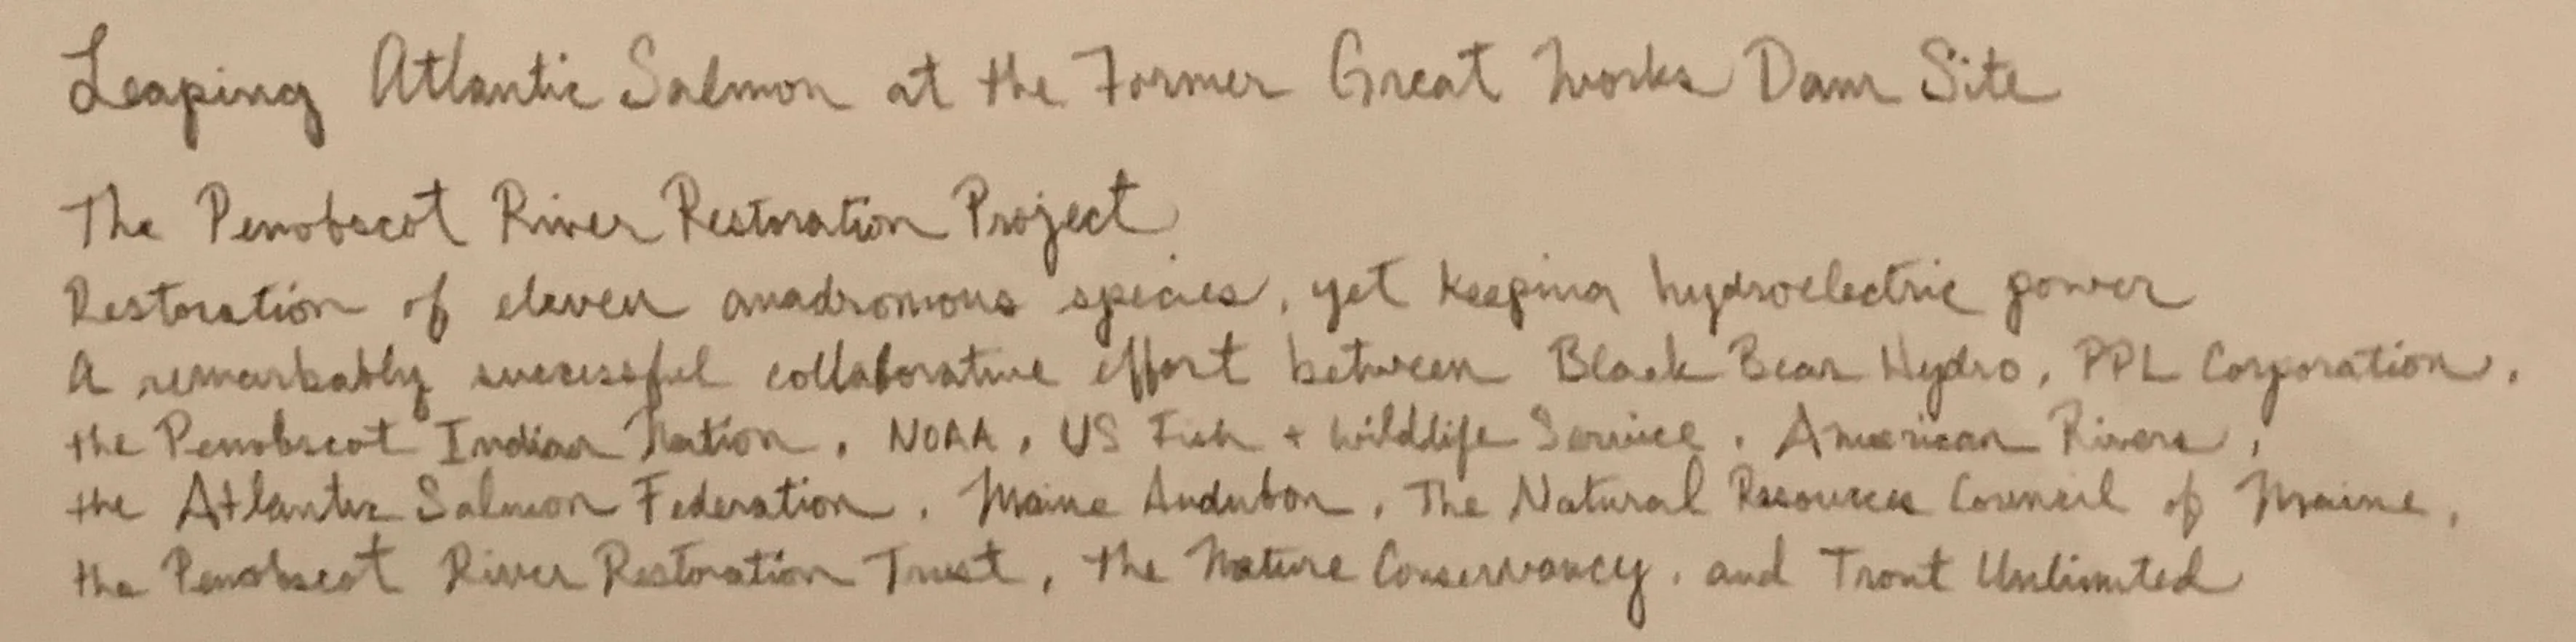 Leaping Atlantic Salmon at the Former Great Works Dam Site
The Penobscot River Restoration Project
Restoration of eleven anadromous species, yet keeping hydroelectric power
A remarkably successful collaborative effort between Black Bear Hydro, PPL Corporation,
the Penobscot Indian Nation, NOAA, US Fish + Wildlife Service, American Rivers,
the Atlantic Salmon Federation, Maine Audubon, The Natural Resources Council of Maine,
the Penobscot River Restoration Trust, the Nature Conservancy, and Trout Unlimited